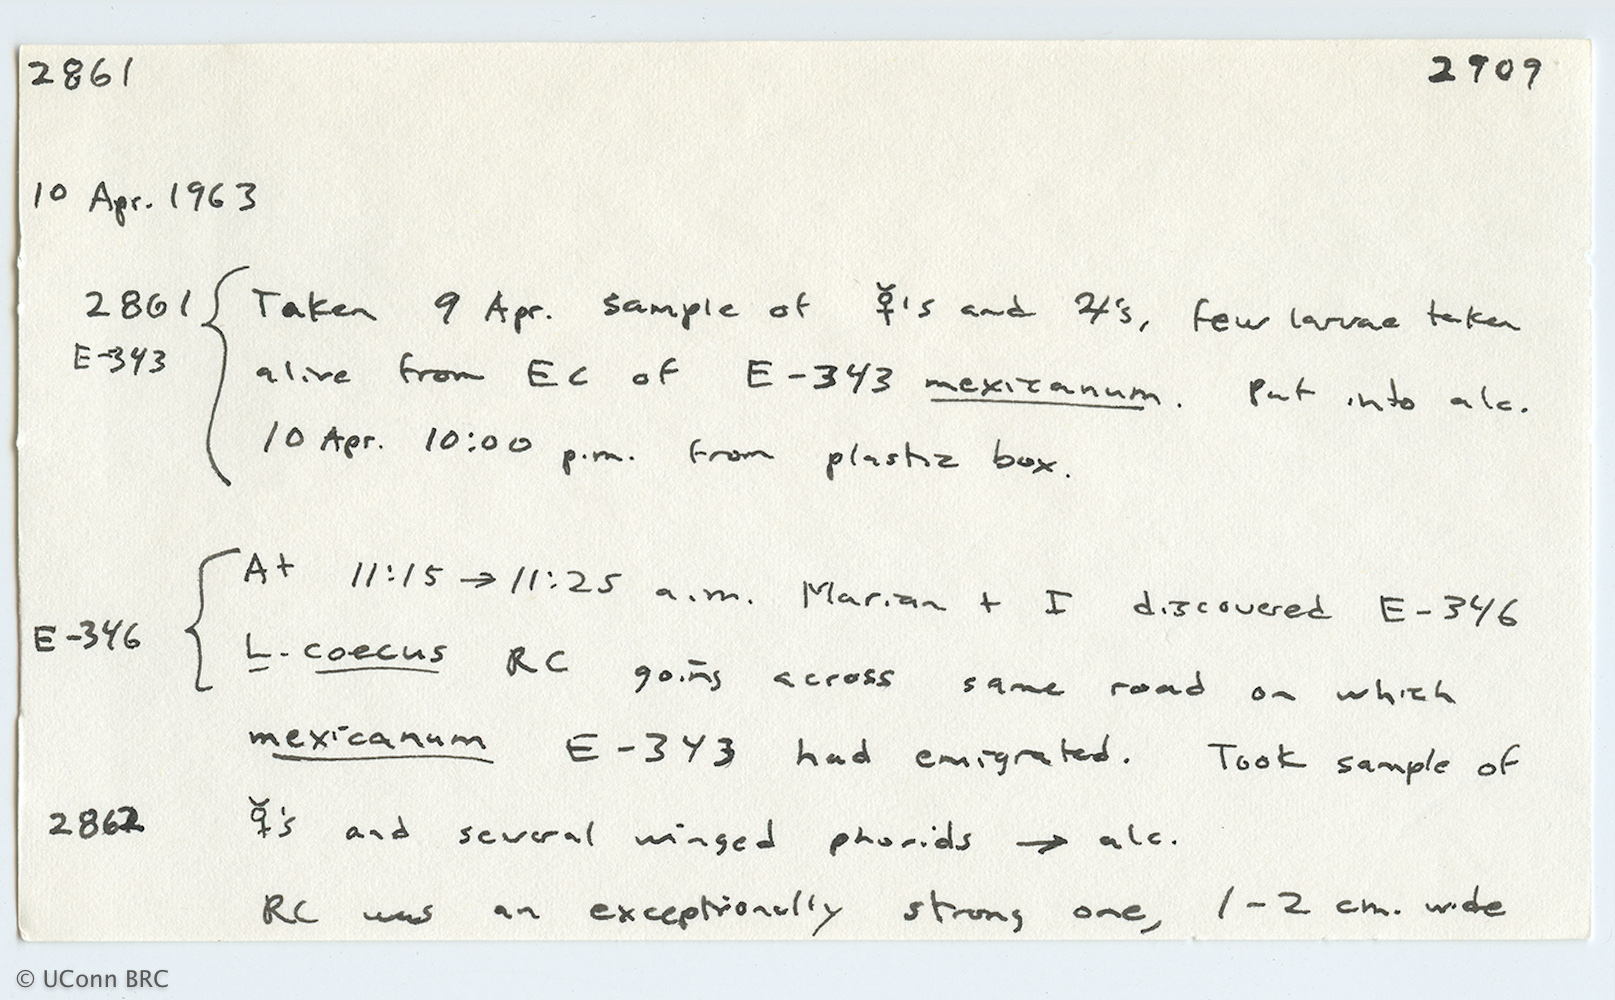 2861 2909
10 Apr. 1963
2861 { Taken 9 Apr. sample of ☿'s and 4's, few larvae taken
E-343 alive from EC of E-343 mexicanum. Put into alc.
10 Apr. 10:00 p.m. from plastic box.
{ At 11:15 → 11:25 a.m. Marian + I discovered E-346
E-346 L. coecus RC going across same road on which
mexicanum E-343 had emigrated. Took sample of
2862 ☿'s and several winged phorids → alc.
RC was an exceptionally strong one, 1-2 cm. wide
© UConn BRC